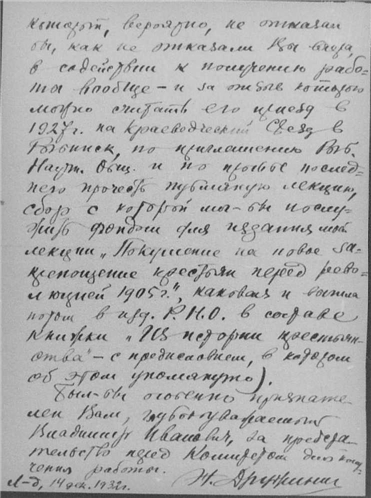 который, вероятно, не отказал
бы, как не отказали Вы
в содействии к получению рабо-
ты вообще – и за
можно считать его приезд в
1927 г. на Краеведческий Съезд в
Рыбинск, по приглашению Рыб.
Научн. Общ. и по просьбе послед-
него прочесть публичную лекцию,
сбор с которой мог-бы послу-
жить фондом для издания моей
лекции „Покушение на новое за-
крепощение крестьян перед рево-
люцией 1905 г.", каковая и вышла
потом в изд. Р.Н.О. в составе
книжки „Из истории крестьян-
ства" – с предисловием, в котором
об этом упомянуто).
Был-бы особенно признате-
лен Вам, глубокоуважаемый
Владимир Иванович, за предста-
тельство перед Комитетом для полу-
чения работы.
Л-д, 14 дек. 1932 г. Н. Дружинин